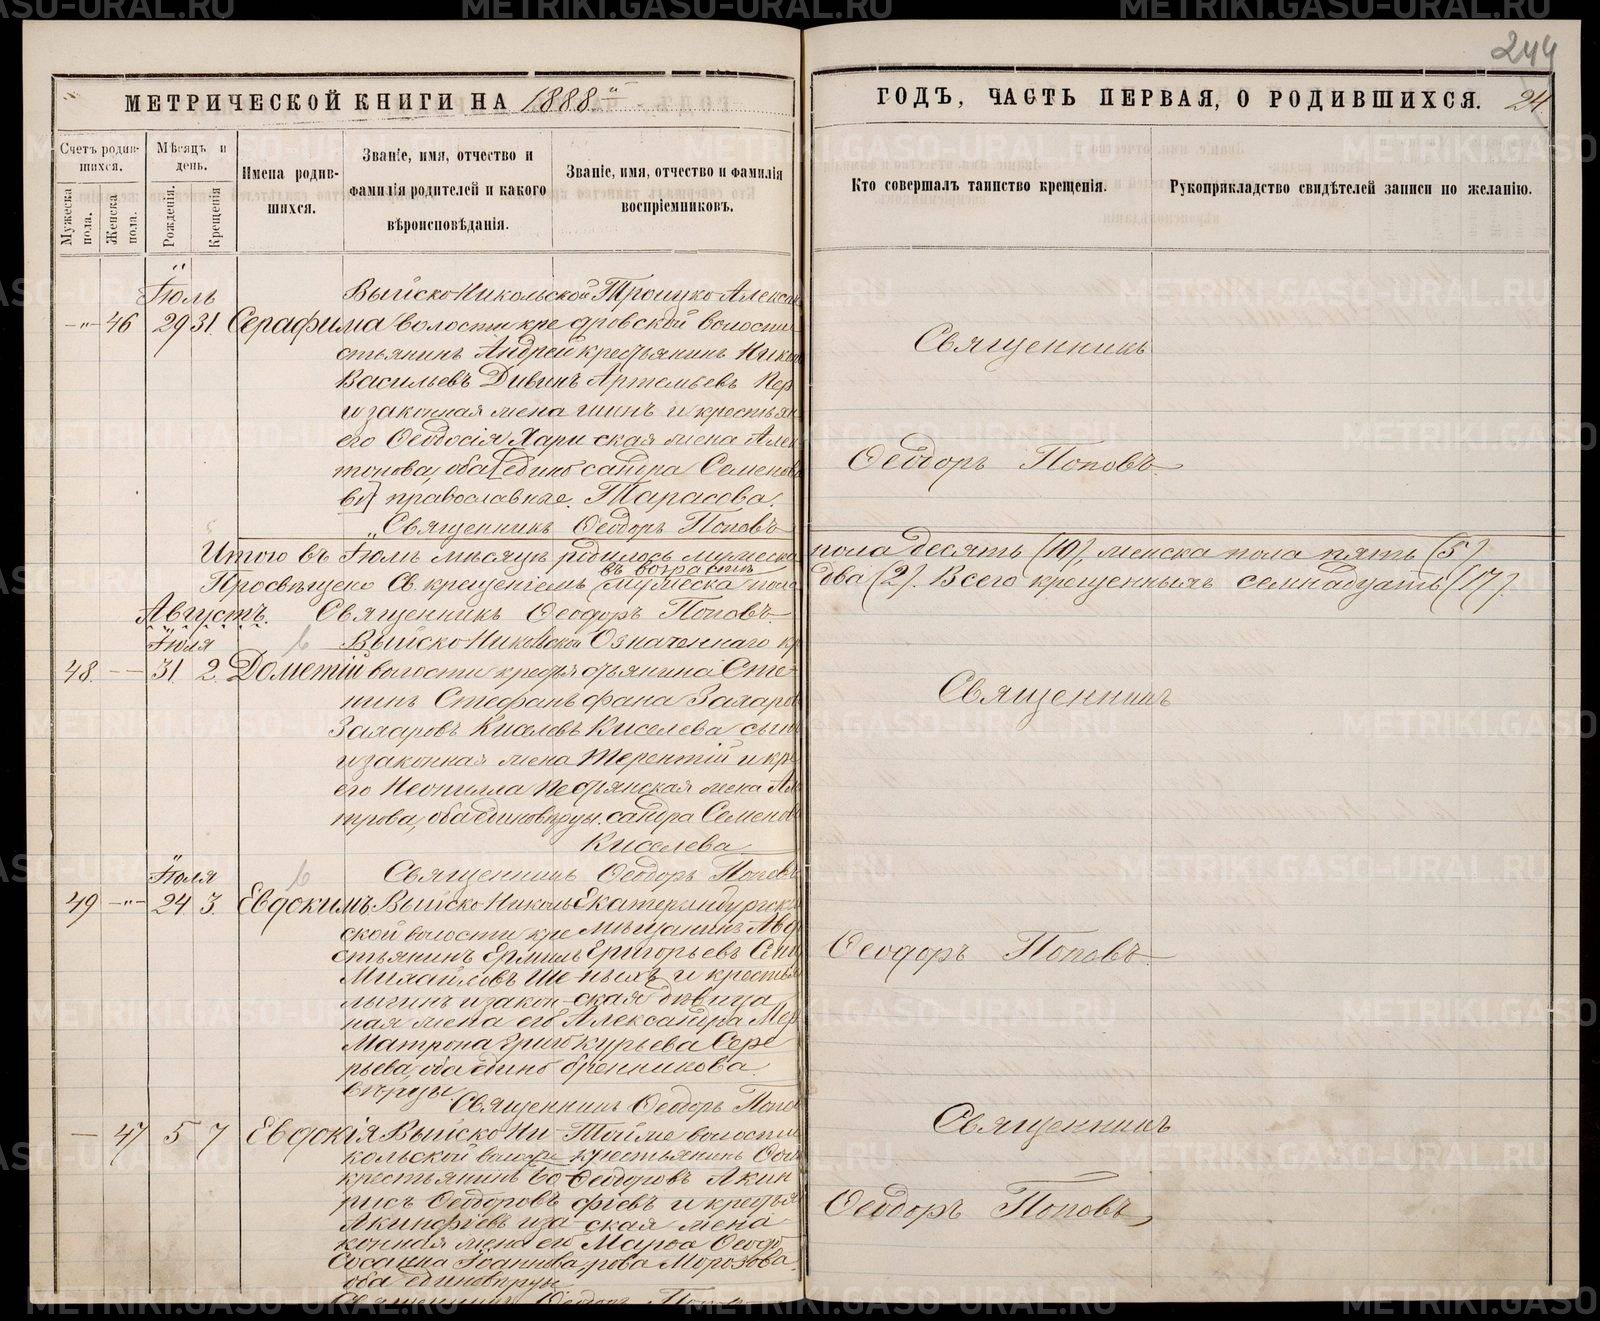 244
МЕТРИЧЕСКОЙ КНИГИ НА 1888 ГОДЪ, ЧАСТЬ ПЕРВАЯ, О РОДИВШИХСЯ. 24.
Счетъ родившихся.
Мужеска пола.
Женска пола.
Мѣсяцъ и день.
Рожденія.
Крещенія
Имена родившихся.
Званіе, имя, отчество и фамилія родителей и какого вѣроисповѣданія.
Званіе, имя, отчество и фамилія воспріемниковъ.
Кто совершалъ таинство крещенія.
Рукоприкладство свидѣтелей записи по желанію.
Іюль
46 29 31. Серафима
Выйско Никольской
волости кре
стьянинъ Андрей
Васильевъ Дивинъ
и законная жена
его Ѳеодосія Хари
тонова, оба [едино
вѣ] православные.
Троицко Алекса
ндровской волости
крестьянинъ
Артемьевъ
шинъ и крестьян
ская жена Алек
сандра Семенова
Тарасова.
Священникъ
Ѳеодоръ Поповъ
Священникъ Ѳеодоръ Поповъ
Итого въ Іюлѣ мѣсяцѣ родилось мужеска пола десять (10), женска пола пять (5)
Просвѣщено Св. крещеніемъ въ возрастѣ мужеска пола два (2). Всего крещенныхъ семнадцать (17).
Августъ. Священникъ Ѳеодоръ Поповъ
Іюля
48. 31 2. Дометій
Выйско Никольской
волости крестья
нинъ Стефанъ
Захаровъ Киселевъ
и законная жена
его Неонилла Пе
трова, оба единовѣрцы.
Означеннаго кр
стьянина Сте
фана Захаров
Киселева сынъ
Терентій и кре
стьянская жена Але
сандра Семенова
Киселева
Священникъ
Священникъ Ѳеодоръ Поповъ
Іюля
49 24. 3. Евдокимъ
Выйско Николь
ской волости кре
стьянинъ Ермилъ
Михайловъ Ше
лыгинъ и закон
ная жена его
Матрона Григо
рьева, оба едино
вѣрцы.
Екатеринбургск
мѣщанинъ
Григорьевъ
ныхъ и крестьян
ская дѣвица
Александра Мер
курьева Сере
бренникова.
Ѳеодоръ Поповъ
Священникъ Ѳеодоръ Поповъ
47 5 7 Евдокія
Выйско Ни
кольской волости
крестьянинъ Бо
рисъ Ѳеодоровъ
Акинфіевъ и за
конная жена его
Сосанна Іоаннова,
оба единовѣрцы
волости
крестьянинъ
Ѳеодоровъ Акин
фіевъ и крестья
ская жена
Марѳа Ѳеодо
рова Морозова.
Священникъ
Ѳеодоръ Поповъ
Священникъ Ѳеодоръ Поповъ
METRIKI.GASO-URAL.RU